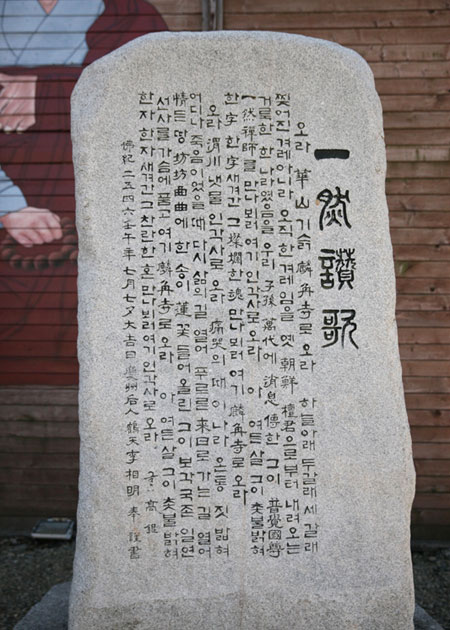 一然讚歌
오라 華山 기슭 麟角寺로 오라 하늘아래 두갈래 세갈래
찢어진 겨레 아니라 오직 한 겨레임을 옛 朝鮮 檀君으로부터 내려오는
거룩한 한 나라였음을 우리 子孫 萬代에 消息 傳한 그이 普覺國尊
一然禪師를 만나뵈러 여기 인각사로 오라 아 여든 살 그이 촛불 밝혀
한字 한字 새겨간 그 燦爛한 魂 만나뵈러 여기 麟角寺로 오라
오라 渭川 냇물 인각사로 오라 痛哭의 때 이 나라 온통 짓밟혀
어디나 죽음이었을 때 다시 삶의 길 열어 푸르른 來日로 가는 길 열어
情든 땅 坊坊曲曲에 한 송이 蓮꽃 들어 올린 그이 보각국존 일연
선사를 가슴에 품고 여기 麟角寺로 오라 아 여든 살 그이 촛불 밝혀
한자 한자 새겨간 그 찬란한 혼 만나뵈러 여기 인각사로 오라 글 高銀
佛紀 二五四六 壬午年 七月七夕 大吉日 慶州后人 鶴天 李相明 奉 謹書